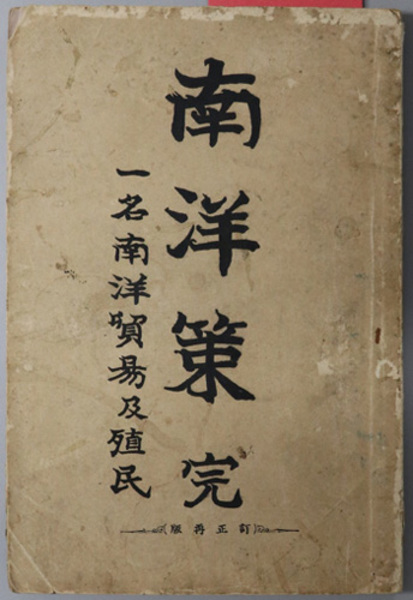 南洋策完
一名南洋貿易及殖民
訂正再版